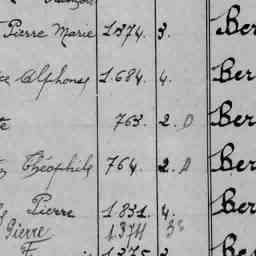 Pierre Marie 1.374. 3. Ber
Alphons 1.684. 4. Ber
te 763. 2. D Ber
Théophile 764. 2. D Ber
Pierre 1.831. 4. Ber
Pierre 1.374 3e